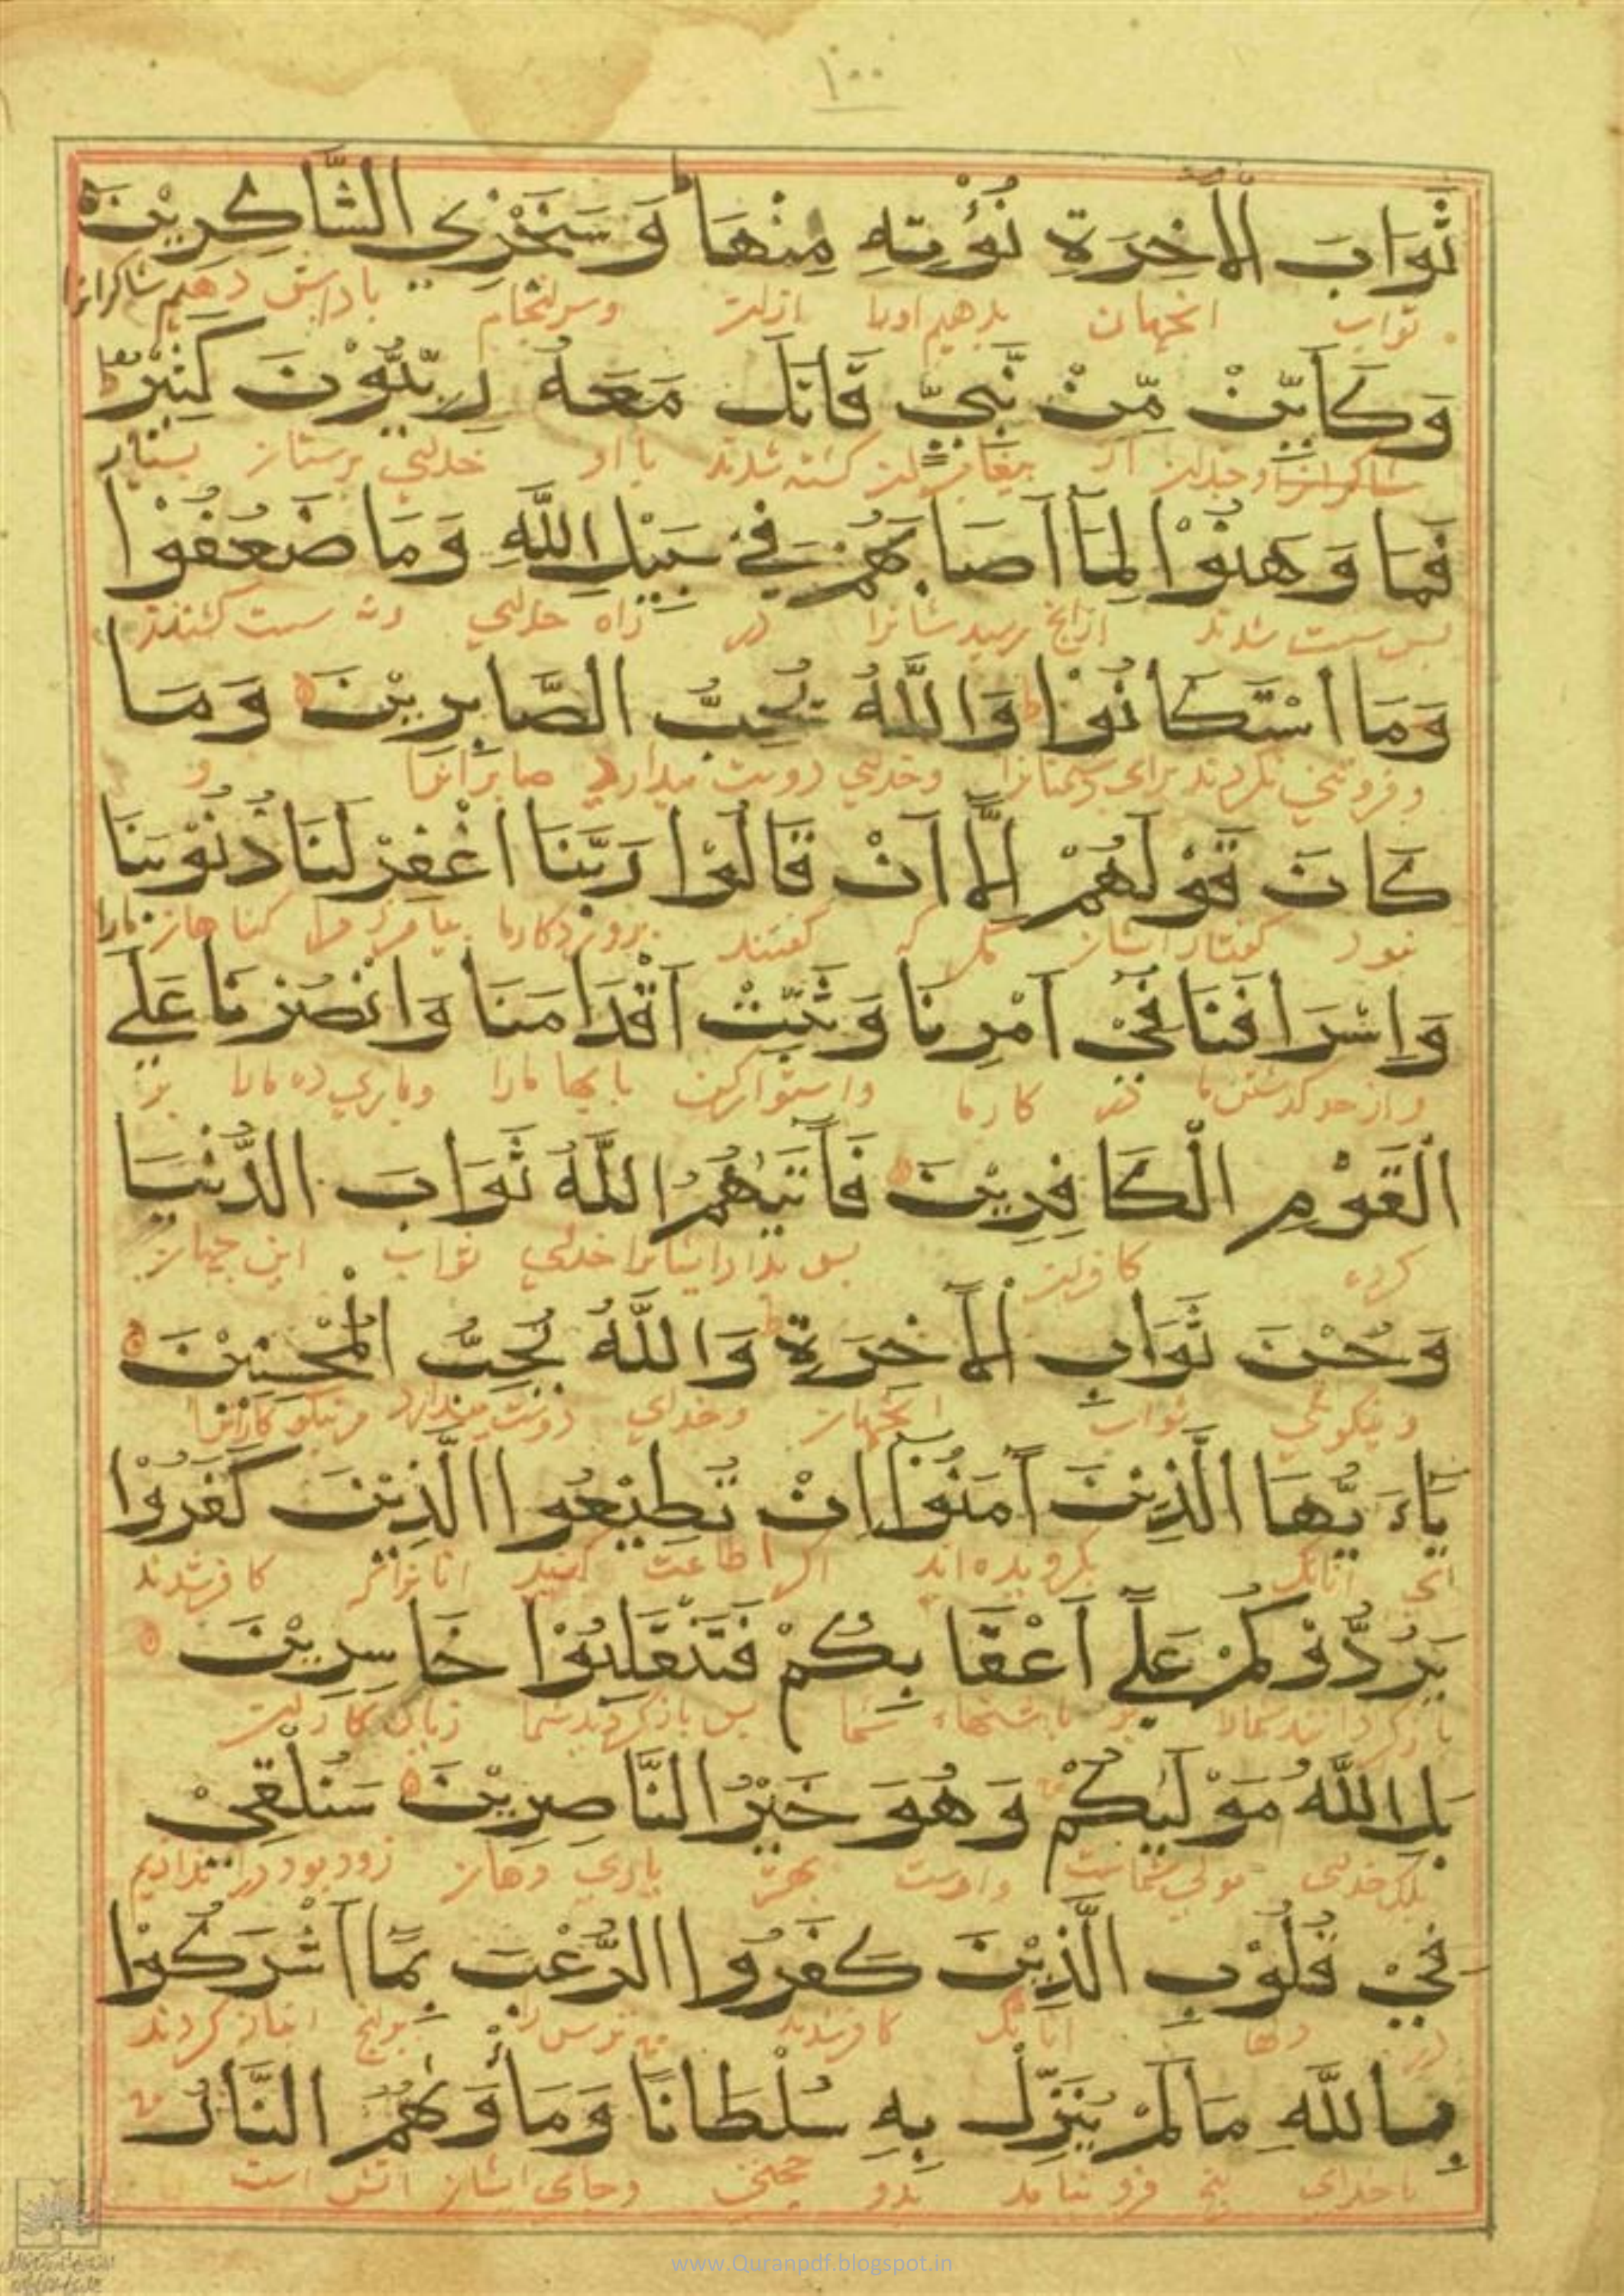 ١٠٠
ثَوَابَ الْاٰخِرَةِ نُؤْتِهِ مِنْهَا وَسَنَجْزِي الشَّاكِرِيْنَ
ثواب انجهان بدهیم اورا ازان وسرانجام پاداش دهیم شاکرانرا
وَكَاَيِّنْ مِّنْ نَّبِيٍّ قَاتَلَ مَعَهُ رِبِّيُّوْنَ كَثِيْرٌ
از پیغامبران کشته شدند با او خدای پرستان بسیار
فَمَا وَهَنُوْا لِمَا اَصَابَهُمْ فِيْ سَبِيْلِ اللّٰهِ وَمَا ضَعُفُوْا
پس سست شدند ازانچ رسید در راه خدای ونه سست گشتند
وَمَا اسْتَكَانُوْا وَاللّٰهُ يُحِبُّ الصَّابِرِيْنَ وَمَا
وفروتنی نکردند برای دشمنانرا وخدای دوست میدارد صابرانرا و
كَانَ قَوْلَهُمْ اِلَّا اَنْ قَالُوْا رَبَّنَا اغْفِرْ لَنَا ذُنُوْبَنَا
نبود گفتار ایشان مگر که گفتند پروردگارما بیامرز مرا گناهان مارا
وَاِسْرَافَنَا فِيْ اَمْرِنَا وَثَبِّتْ اَقْدَامَنَا وَانْصُرْنَا عَلَى
واز حد گذشتن ما در کارما واستوارکن پایها مارا ویاری ده مارا بر
الْقَوْمِ الْكَافِرِيْنَ فَاٰتٰيهُمُ اللّٰهُ ثَوَابَ الدُّنْيَا
کروه کافران پس بداد ایشانرا خدای ثواب این جهان
وَحُسْنَ ثَوَابِ الْاٰخِرَةِ وَاللّٰهُ يُحِبُّ الْمُحْسِنِيْنَ
ونیکوئی ثواب انجهان وخدای دوست میدارد مرنیکوکارانرا
يَاءَيُّهَا الَّذِيْنَ اٰمَنُوْا اِنْ تُطِيْعُوا الَّذِيْنَ كَفَرُوْا
ای انانک بکرویده اند اکر اطاعت کنید انانراکه کافرشدند
يَرُدُّوْكُمْ عَلٰى اَعْقَابِكُمْ فَتَنْقَلِبُوْا خَاسِرِيْنَ
بازگردانند شمارا بر پاشنهاء شما پس بازگردید شما زیان کاران
بَلِ اللّٰهُ مَوْلٰيكُمْ وَهُوَ خَيْرُ النَّاصِرِيْنَ سَنُلْقِيْ
بلک خدای مولی شماست واوست بهتر یاری دهان زود بود در اندازیم
فِيْ قُلُوْبِ الَّذِيْنَ كَفَرُوا الرُّعْبَ بِمَا اَشْرَكُوْا
در دلها انانک کافرشدند ترس را برانچ انباز کردند
بِاللّٰهِ مَا لَمْ يُنَزِّلْ بِهِ سُلْطَانًا وَمَأْوٰىهُمُ النَّارُ
باخدای انچ فرو نیامد بدو حجتی وجای ایشان اتش است
www.Quranpdf.blogspot.in